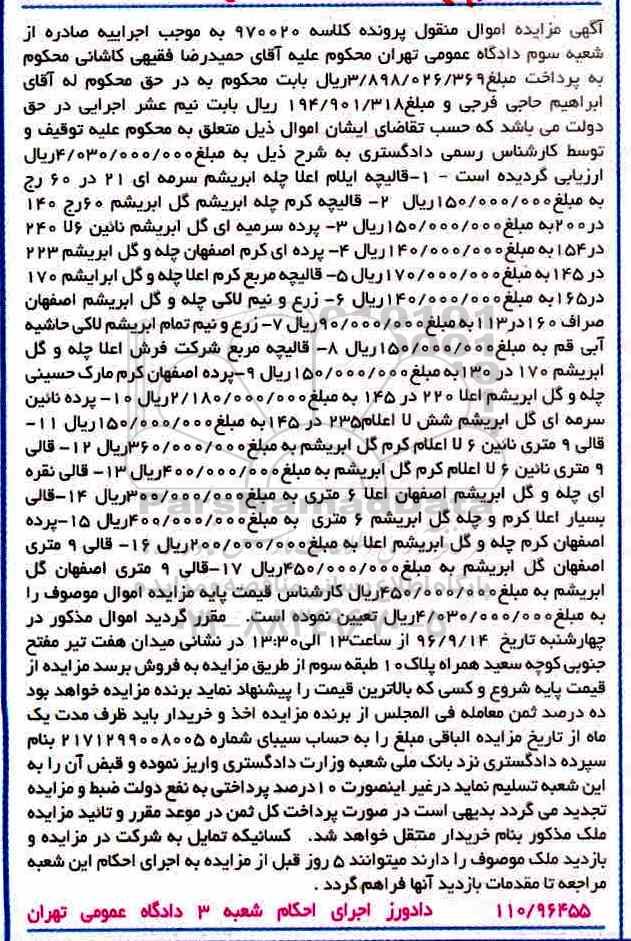 آگهی مزایده اموال منقول پرونده کلاسه ۹۷۰۰۲۰ به موجب اجراییه صادره از
شعبه سوم دادگاه عمومی تهران محکوم علیه آقای حمیدرضا فقیهی کاشانی محکوم
به پرداخت مبلغ۳/۸۹۸/۰۲۶/۳۶۹ریال بابت محکوم به در حق محکوم له آقای
ابراهیم حاجی فرجی و مبلغ۱۹۴/۹۰۱/۳۱۸ ریال بابت نیم عشر اجرایی در حق
دولت می باشد که حسب تقاضای ایشان اموال ذیل متعلق به محکوم علیه توقیف و
توسط کارشناس رسمی دادگستری به شرح ذیل به مبلغ۴/۰۳۰/۰۰۰/۰۰۰ریال
ارزیابی گردیده است - ۱-قالیچه ایلام اعلا چله ابریشم سرمه ای ۲۱ در ۶۰ رج
به مبلغ۱۵۰/۰۰۰/۰۰۰ریال ۲- قالیچه کرم چله ابریشم گل ابریشم ۶۰رج ۱۴۰
در۲۰۰به مبلغ۱۵۰/۰۰۰/۰۰۰ریال ۳- پرده سرمیه ای گل ابریشم نائین ۶لا ۲۴۰
در۱۵۴به مبلغ۱۴۰/۰۰۰/۰۰۰ریال ۴- پرده ای کرم اصفهان چله و گل ابریشم ۲۲۳
در ۱۴۵به مبلغ۱۷۰/۰۰۰/۰۰۰ریال ۵- قالیچه مربع کرم اعلا چله و گل ابرایشم ۱۷۰
در۱۶۵به مبلغ۱۴۰/۰۰۰/۰۰۰ریال ۶- زرع و نیم لاکی چله و گل ابریشم اصفهان
صراف ۱۶۰در۱۱۳به مبلغ۹۰/۰۰۰/۰۰۰ریال ۷- زرع و نیم تمام ابریشم لاکی حاشیه
آبی قم به مبلغ۱۵۰/۰۰۰/۰۰۰ریال ۸- قالیچه مربع شرکت فرش اعلا چله و گل
ابریشم ۱۷۰ در ۱۳۰به مبلغ۱۵۰/۰۰۰/۰۰۰ریال ۹-پرده اصفهان کرم مارک حسینی
چله و گل ابریشم اعلا ۲۲۰ در ۱۴۵ به مبلغ۲/۱۸۰/۰۰۰/۰۰۰ریال ۱۰- پرده نائین
سرمه ای گل ابریشم شش لا اعلام۲۳۵ در ۱۴۵به مبلغ۱۵۰/۰۰۰/۰۰۰ریال ۱۱-
قالی ۹ متری نائین ۶ لا اعلام کرم گل ابریشم به مبلغ۳۶۰/۰۰۰/۰۰۰ریال ۱۲- قالی
۹ متری نائین ۶ لا اعلام کرم گل ابریشم به مبلغ۴۰۰/۰۰۰/۰۰۰ریال ۱۳- قالی نقره
ای چله و گل ابریشم اصفهان اعلا ۶ متری به مبلغ۳۰۰/۰۰۰/۰۰۰ریال ۱۴-قالی
بسیار اعلا کرم و چله گل ابریشم ۶ متری به مبلغ۴۰۰/۰۰۰/۰۰۰ریال ۱۵-پرده
اصفهان کرم چله و گل ابریشم اعلا به مبلغ۲۰۰/۰۰۰/۰۰۰ریال ۱۶- قالی ۹ متری
اصفهان گل ابریشم به مبلغ۴۵۰/۰۰۰/۰۰۰ریال ۱۷-قالی ۹ متری اصفهان گل
ابریشم به مبلغ۴۵۰/۰۰۰/۰۰۰ریال کارشناس قیمت پایه مزایده اموال موصوف را
به مبلغ۴/۰۳۰/۰۰۰/۰۰۰ریال تعیین نموده است. مقرر گردید اموال مذکور در
چهارشنبه تاریخ ۹۶/۹/۱۴ از ساعت۱۳ الی۱۳:۳۰ در نشانی میدان هفت تیر مفتح
جنوبی کوچه سعید همراه پلاک۱۰ طبقه سوم از طریق مزایده به فروش برسد مزایده از
قیمت پایه شروع و کسی که بالاترین قیمت را پیشنهاد نماید برنده مزایده خواهد بود
ده درصد ثمن معامله فی المجلس از برنده مزایده اخذ و خریدار باید ظرف مدت یک
ماه از تاریخ مزایده الباقی مبلغ را به حساب سیبای شماره ۲۱۷۱۲۹۹۰۰۸۰۰۵ بنام
سپرده دادگستری نزد بانک ملی شعبه وزارت دادگستری واریز نموده و قبض آن را به
این شعبه تسلیم نماید درغیر اینصورت ۱۰درصد پرداختی به نفع دولت ضبط و مزایده
تجدید می گردد بدیهی است در صورت پرداخت کل ثمن در موعد مقرر و تائید مزایده
ملک مذکور بنام خریدار منتقل خواهد شد. کسانیکه تمایل به شرکت در مزایده و
بازدید ملک موصوف را دارند میتوانند ۵ روز قبل از مزایده به اجرای احکام این شعبه
مراجعه تا مقدمات بازدید آنها فراهم گردد .
۱۱۰/۹۶۴۵۵ دادورز اجرای احکام شعبه ۳ دادگاه عمومی تهران